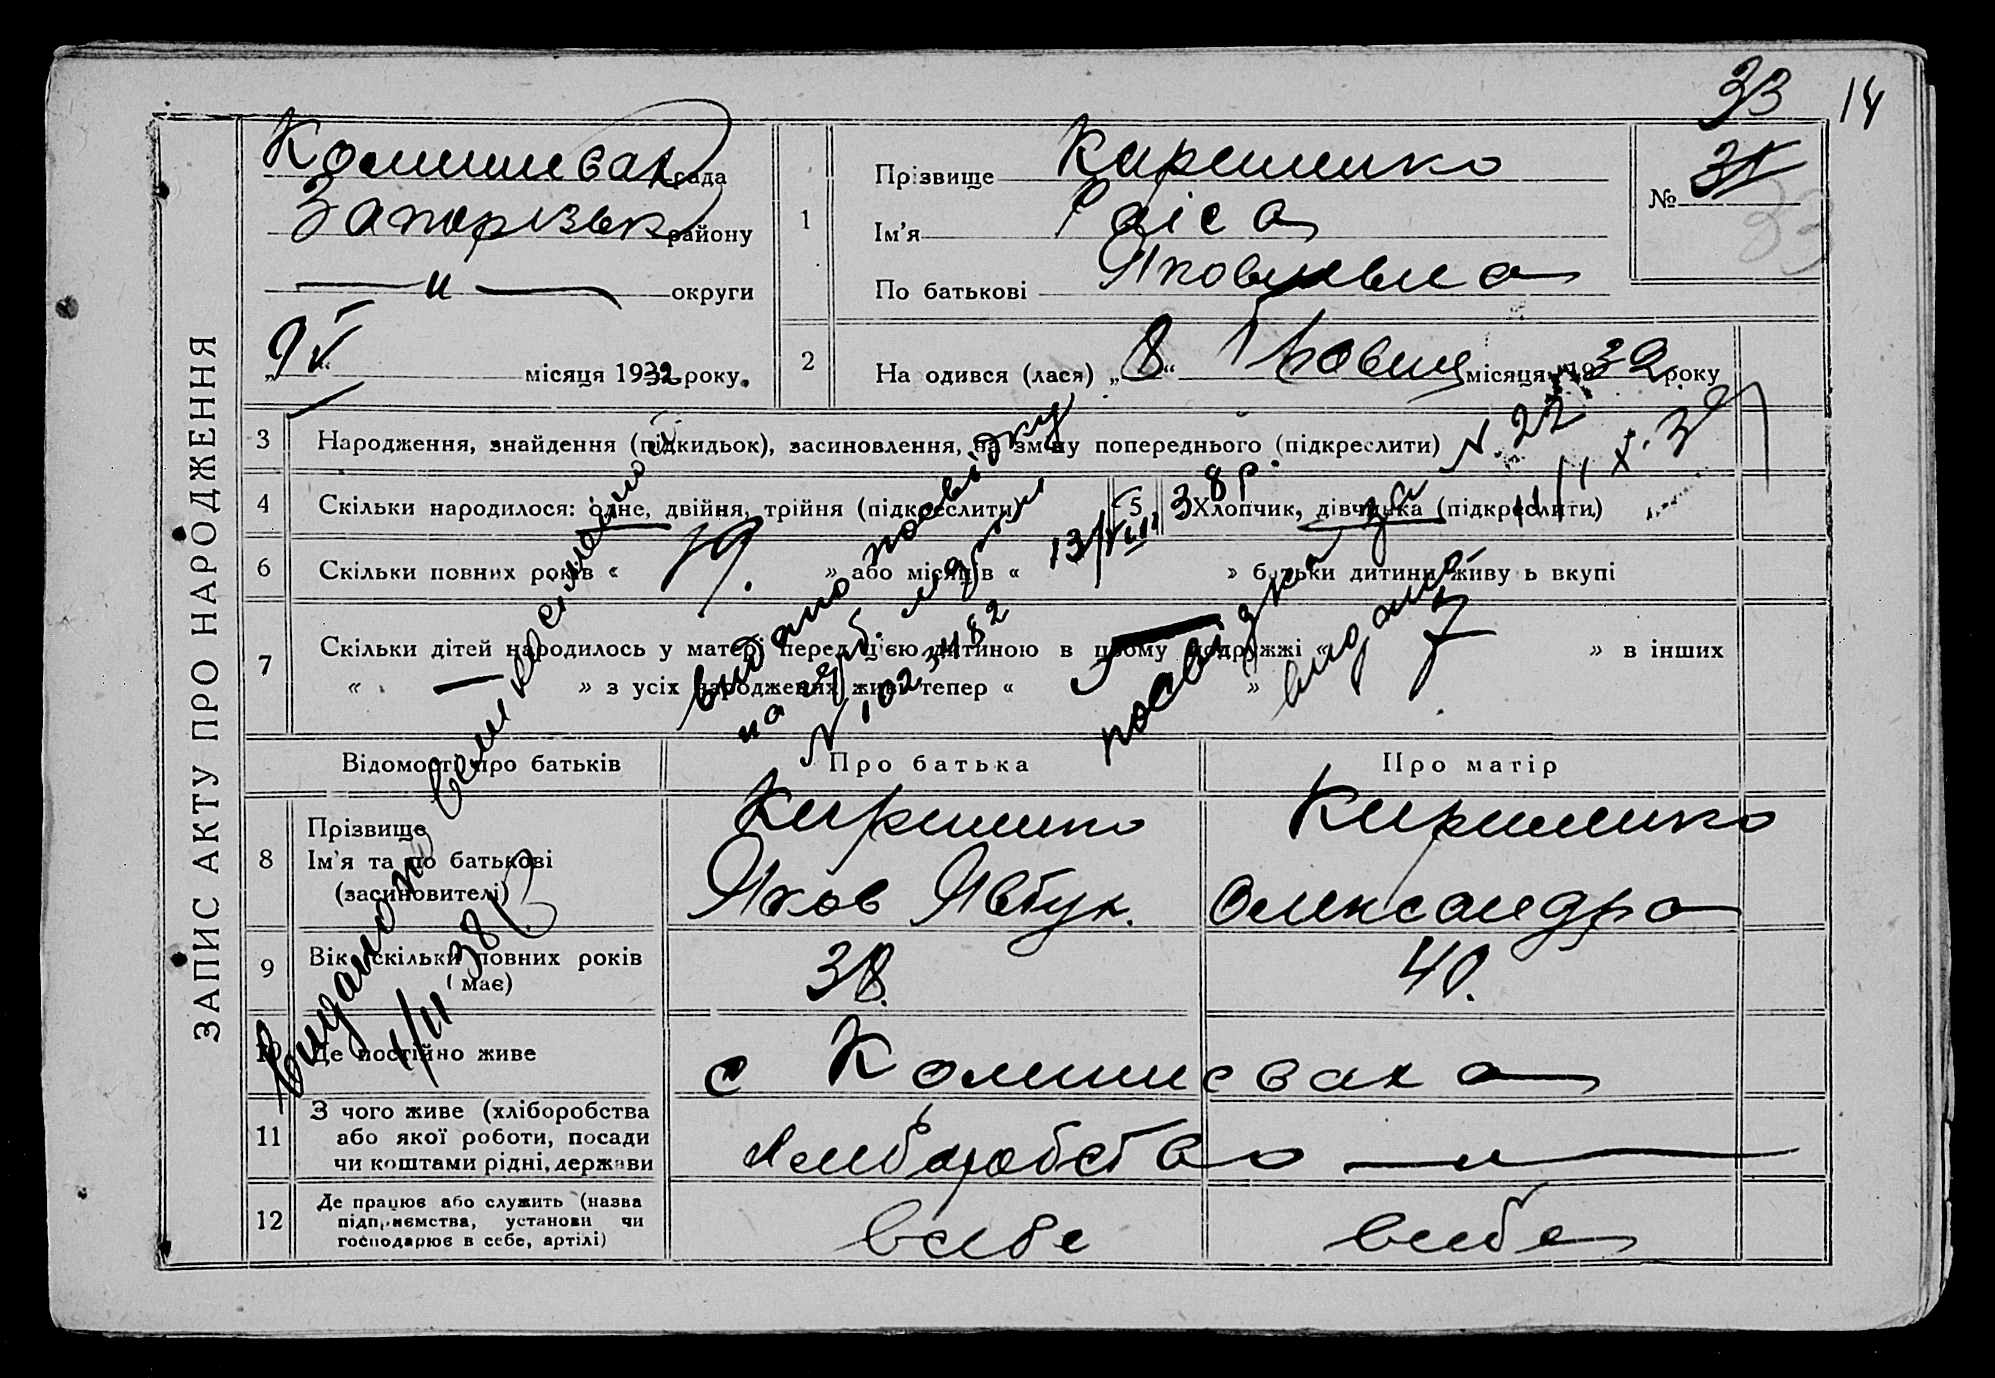 33 14
ЗАПИС АКТУ ПРО НАРОДЖЕННЯ
Комишевах рада
Запорізьк району
— " — округи
„9 V“ місяця 1932 року.
1
Прізвище Киришико
Ім'я Раїса
По батькові Яковлівна
№ 31
33
2
На одився (лася) „8“ Травня місяця 1932 року
3 Народження, знайдення (підкидьок), засиновлення, на зміну попереднього (підкреслити)
4 Скільки народилося: одне, двійня, трійня (підкреслити)
5 Хлопчик, дівчинка (підкреслити)
6 Скільки повних років « 19. » або місяців « » батьки дитини живу ь вкупі
7 Скільки дітей народилось у матері перед цією дитиною в цьому подружжі « 7 » в інших
« — » з усіх народжених живе тепер « 5 »
видано посвідку
N 1023482
13/VIII 38 р.
посвідка за N 22
видано 11/X 39
Видано
1/II 38
Відомості про батьків
Про батька
Про матір
8 Прізвище
Ім'я та по батькові
(засиновителі)
Киришико
Яков Явтух.
Киришико
Олександра
9 Вік скільки повних років
(має)
38.
40.
10 Де постійно живе
с Комишеваха
11 З чого живе (хліборобства
або якої роботи, посади
чи коштами рідні, держави
хліборобство — " —
12 Де працює або служить (назва
підприємства, установи чи
господарює в себе, артілі)
всебе
всебе